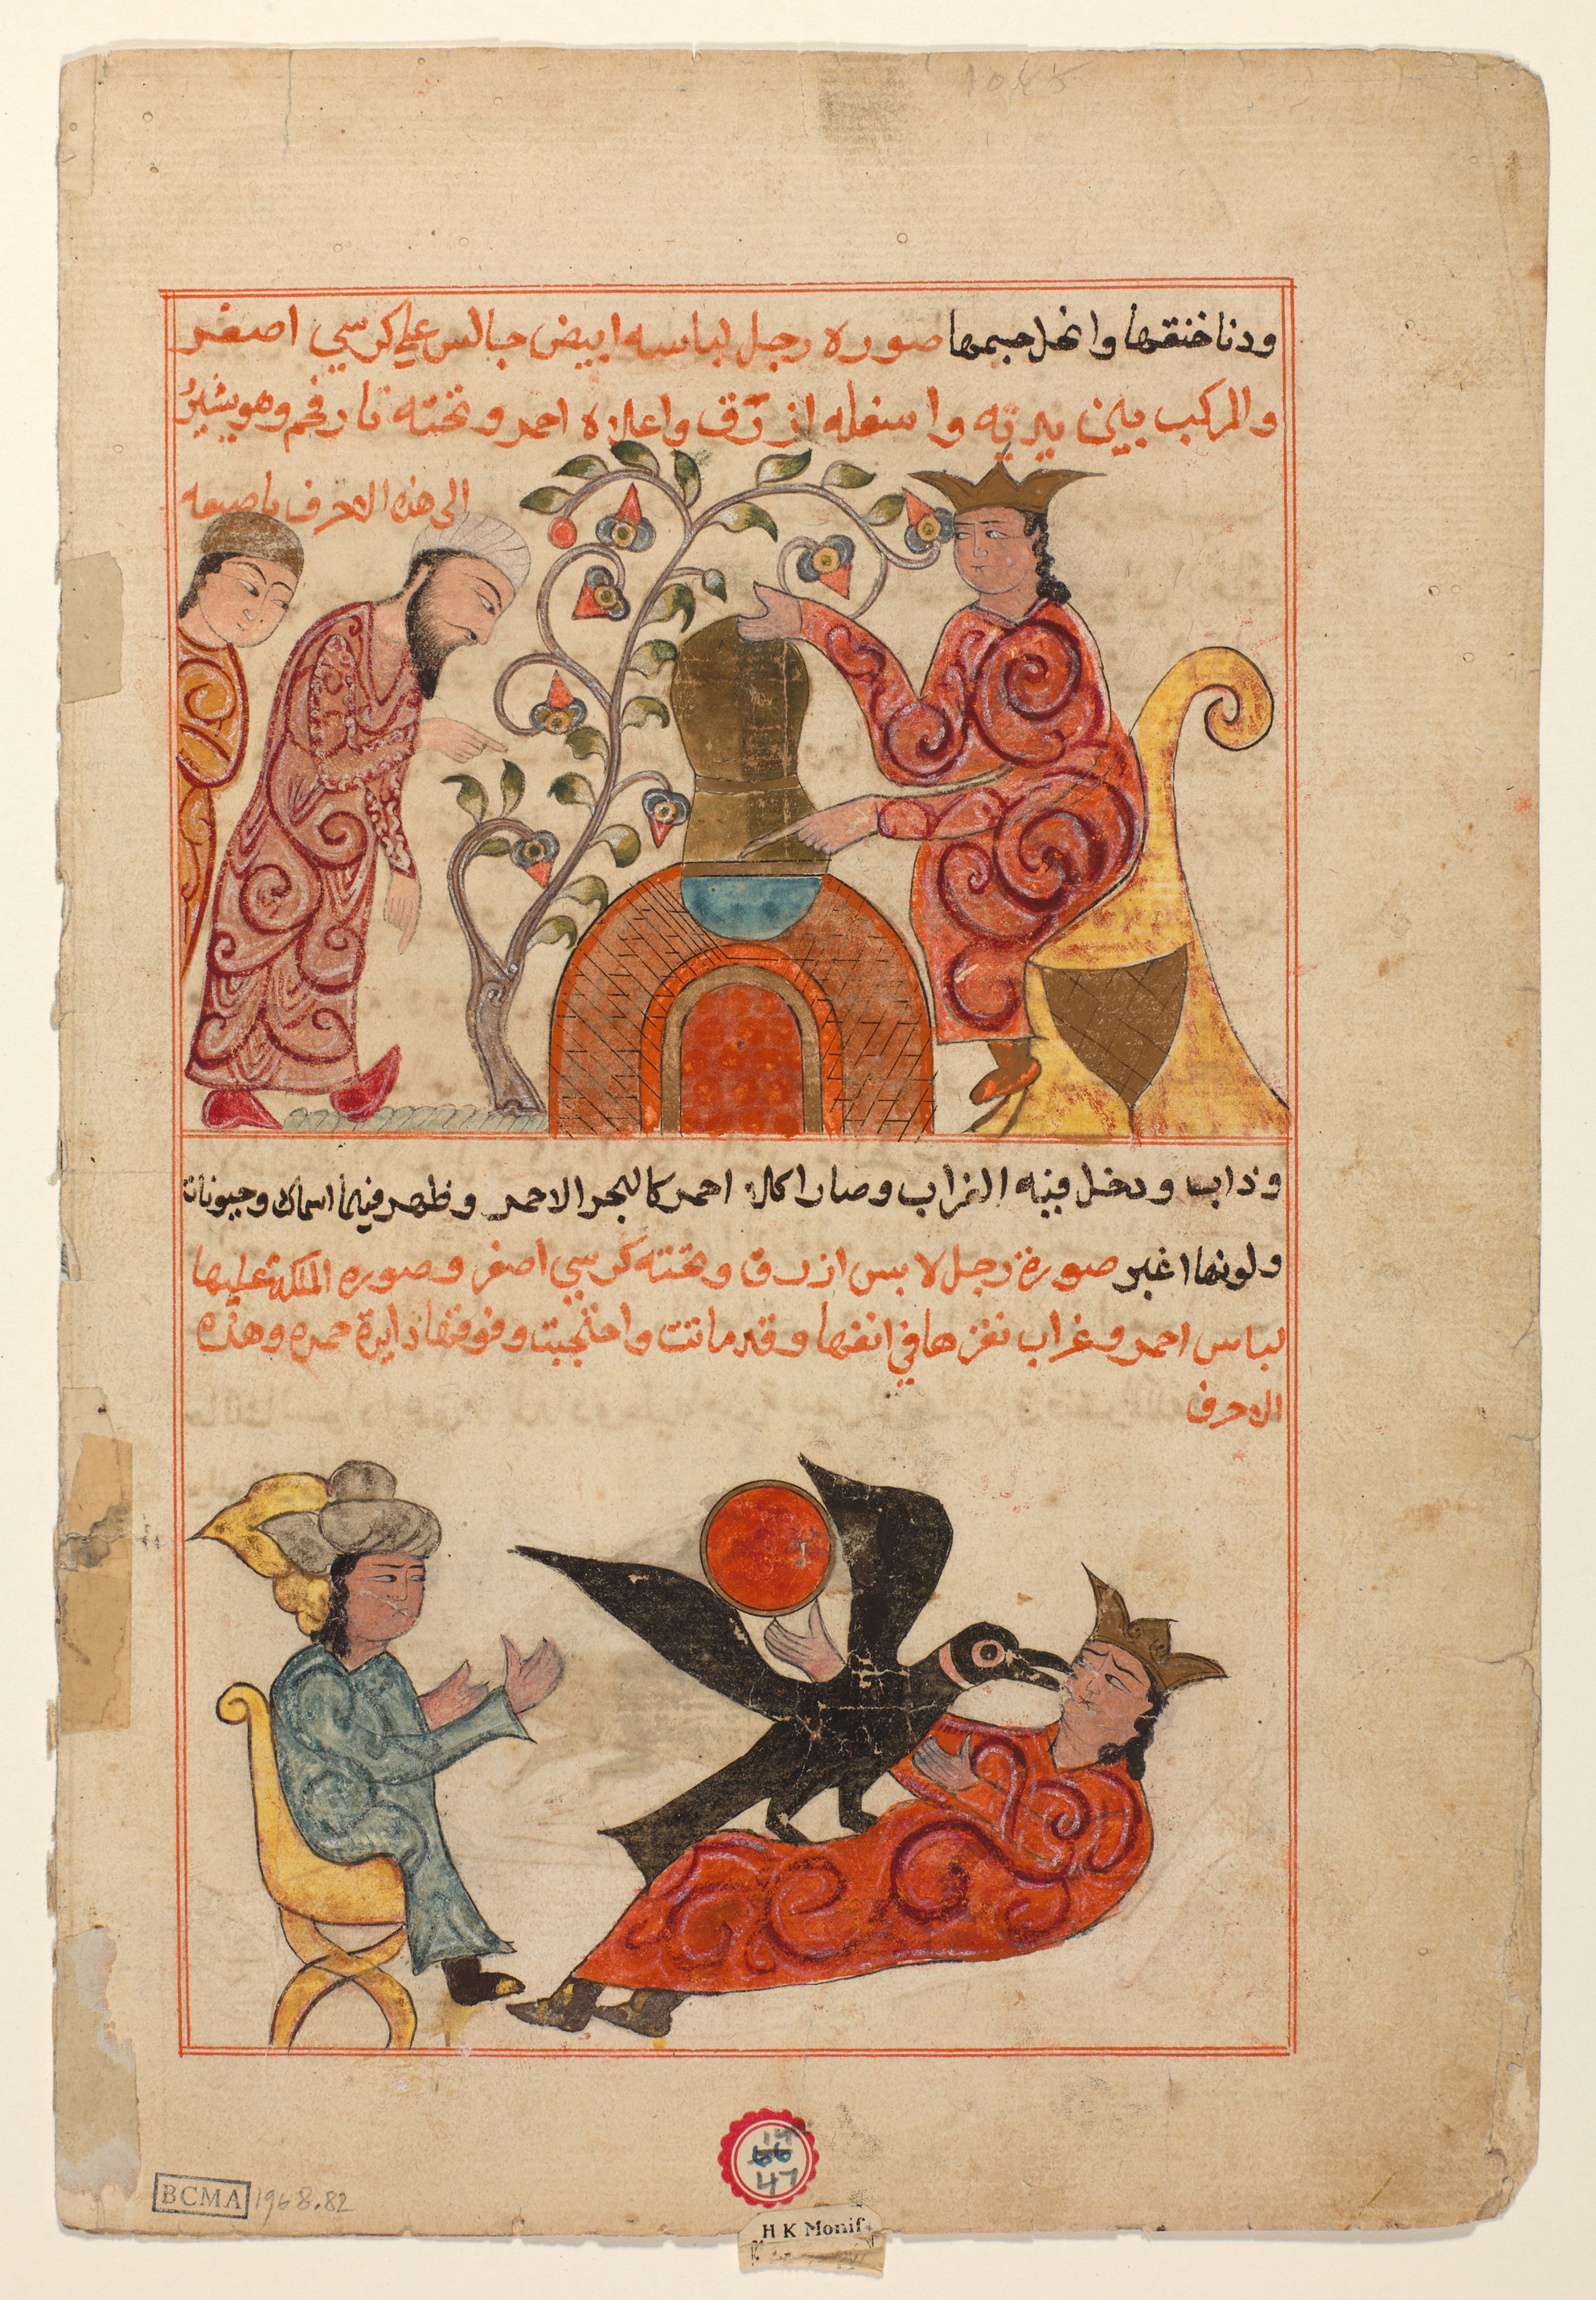 ودنا خنقها وانحل جسمها صوره رجل لباسه ابيض جالس علي كرسي اصفر
والمركب بين يديه واسفله ازرق واعلاه احمر وتحته نار فحم وهو يشير
الى هذه الاحرف باصبعه
وذاب ودخل فيه الغراب وصار احمر كالبحر الاحمر وظهر فيها اسماك وحيونات
ولونها اغبر صورة رجل لابس ازرق وتحته كرسي اصفر وصوره الملكة عليها
لباس احمر وغراب نقرها في انفها وقد ماتت واحتجبت وفوقها دايرة حمره وهذه
الاحرف
BCMA 1968.82
47
H K Monif